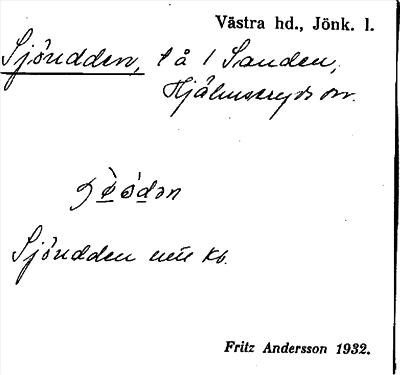 Västra hd., Jönk. l.
Sjöudden, t å 1 Sanden,
Hjälmseryds sn.
Sjöudden enl. kb.
Fritz Andersson 1932.